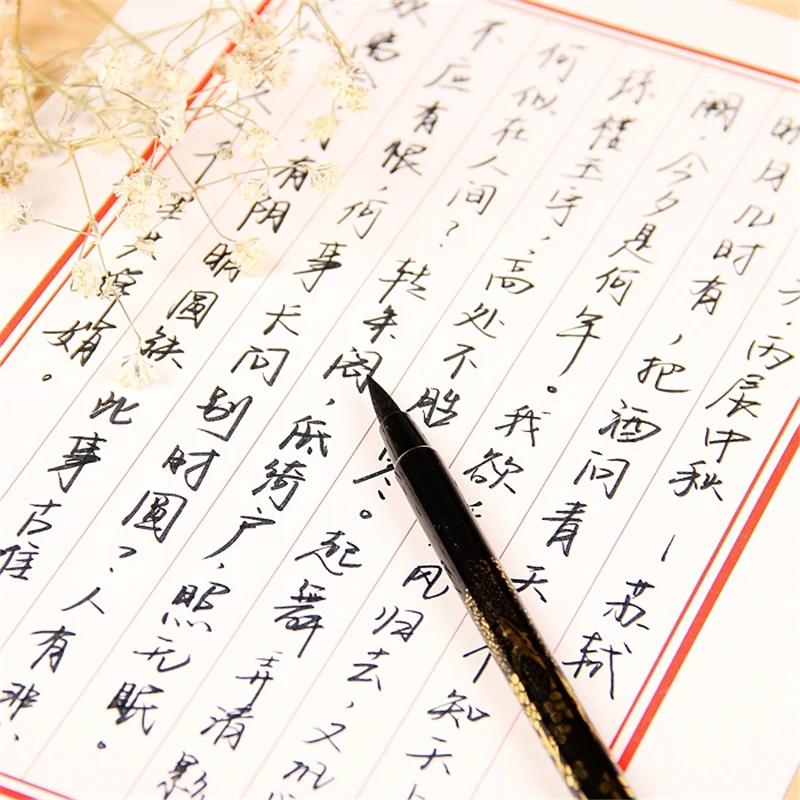 丙辰中秋 — 苏轼
明月几时有，把酒问青天 不知天
阙·今夕是何年。我欲 风归去，又恐
琼楼玉宇，高处不胜寒。起舞弄清影
何似在人间？转朱阁，低绮户，照无眠。
不应有恨，何事长向别时圆？人有悲
欢离 有阴晴圆缺 此事古难
千里共婵娟。